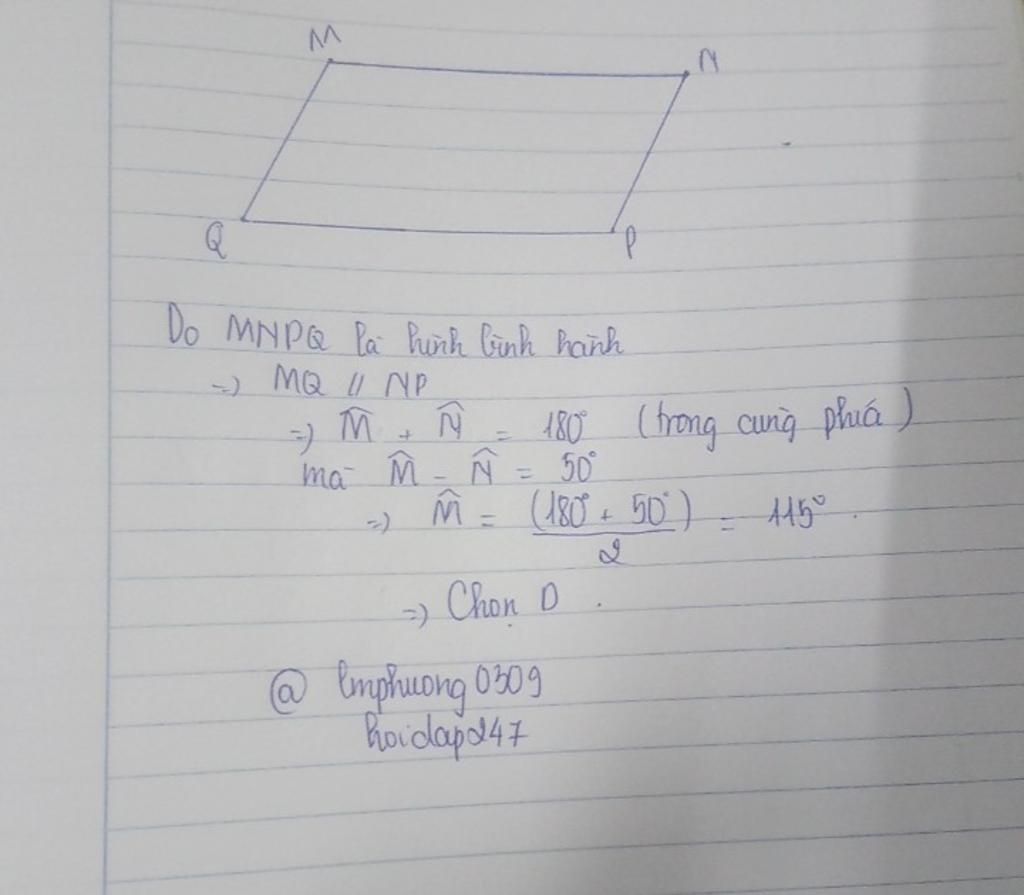 M
N
Q
P
Do MNPQ là hình bình hành
=> MQ // NP
=> M̂ + N̂ = 180° (trong cùng phía)
mà M̂ - N̂ = 50°
=> M̂ = (180° + 50°)/2 = 115°.
=> Chọn D.
@ lmphuong0309
hoidap247